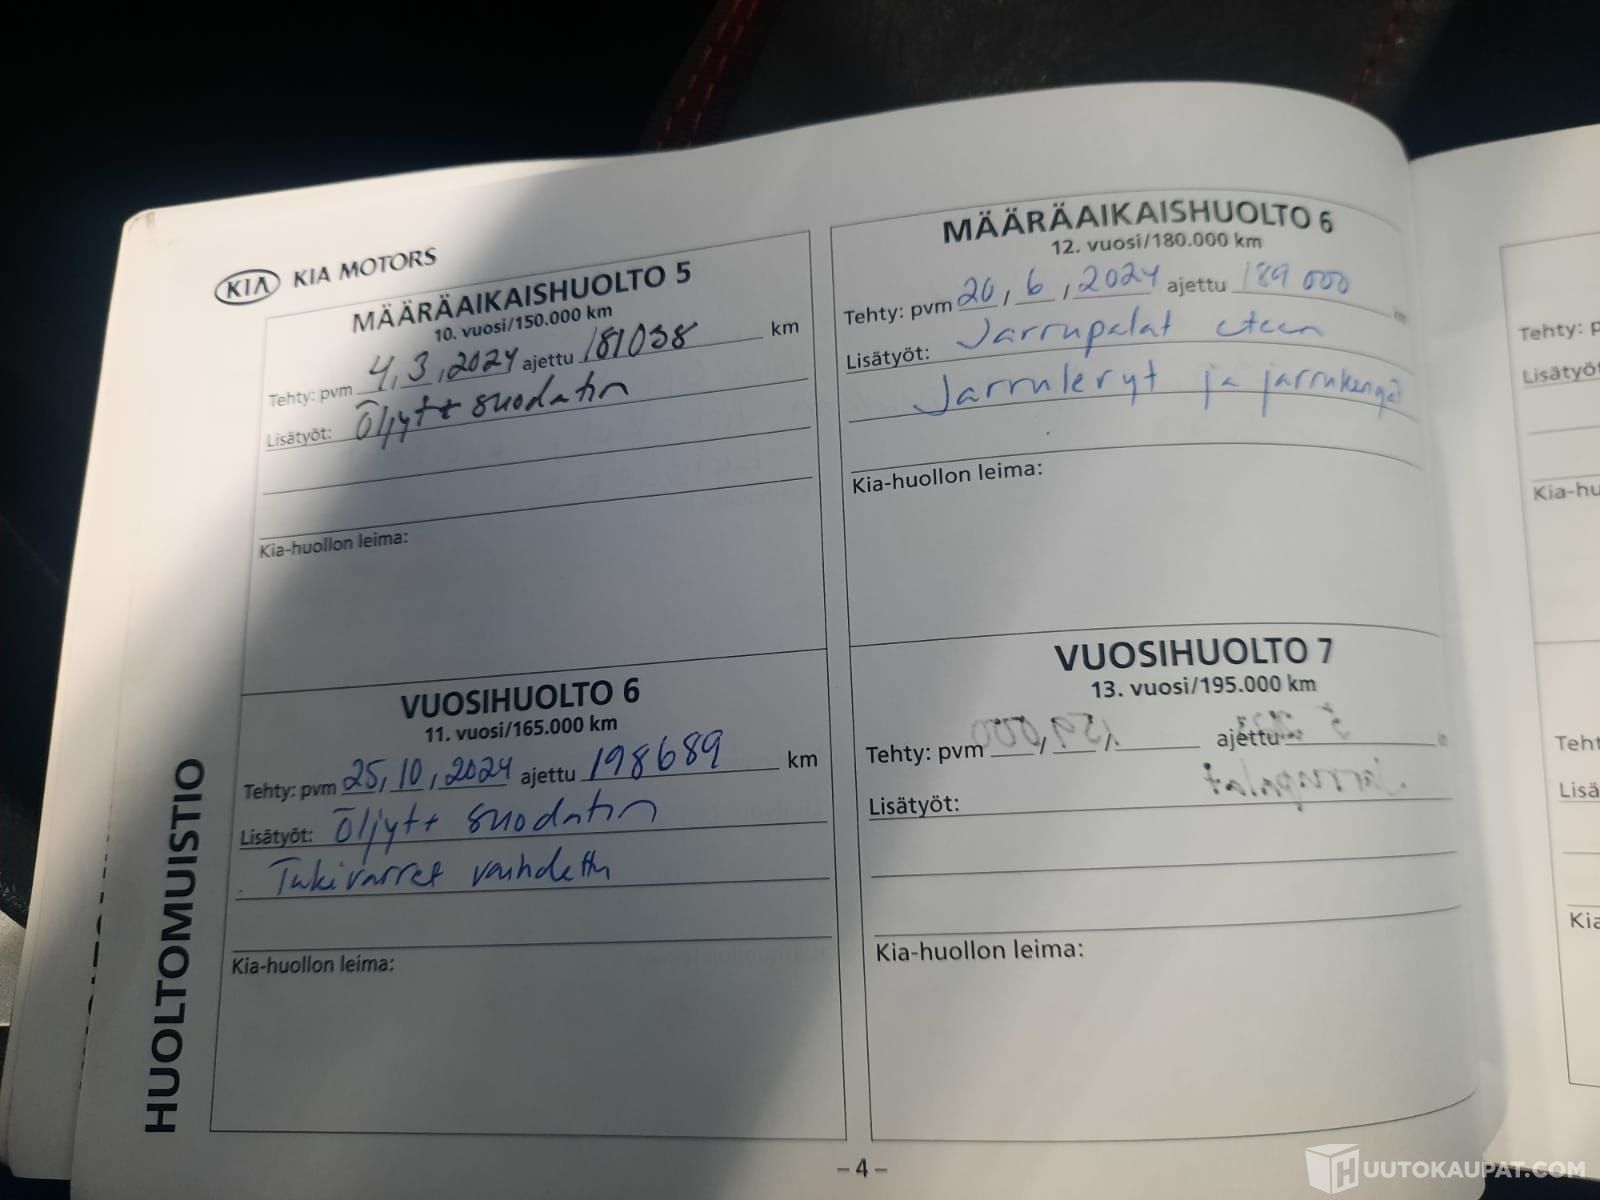 KIA KIA MOTORS
MÄÄRÄAIKAISHUOLTO 5
10. vuosi/150.000 km
Tehty: pvm 4, 3, 2024 ajettu 181038 km
Lisätyöt: Öljyt + suodatin
Kia-huollon leima:
VUOSIHUOLTO 6
11. vuosi/165.000 km
Tehty: pvm 25, 10, 2024 ajettu 198689 km
Lisätyöt: Öljyt + suodatin
Tukivarret vaihdettu
Kia-huollon leima:
MÄÄRÄAIKAISHUOLTO 6
12. vuosi/180.000 km
Tehty: pvm 20, 6, 2024 ajettu 189 000 km
Lisätyöt: Jarrupalat eteen
Jarrulevyt ja jarrukengät
Kia-huollon leima:
VUOSIHUOLTO 7
13. vuosi/195.000 km
Tehty: pvm ajettu
Lisätyöt:
Kia-huollon leima:
HUOLTOMUISTIO
– 4 –
Tehty: p
Lisätyö
Kia-hu
Teht
Lisä
Kia
HUUTOKAUPAT.COM